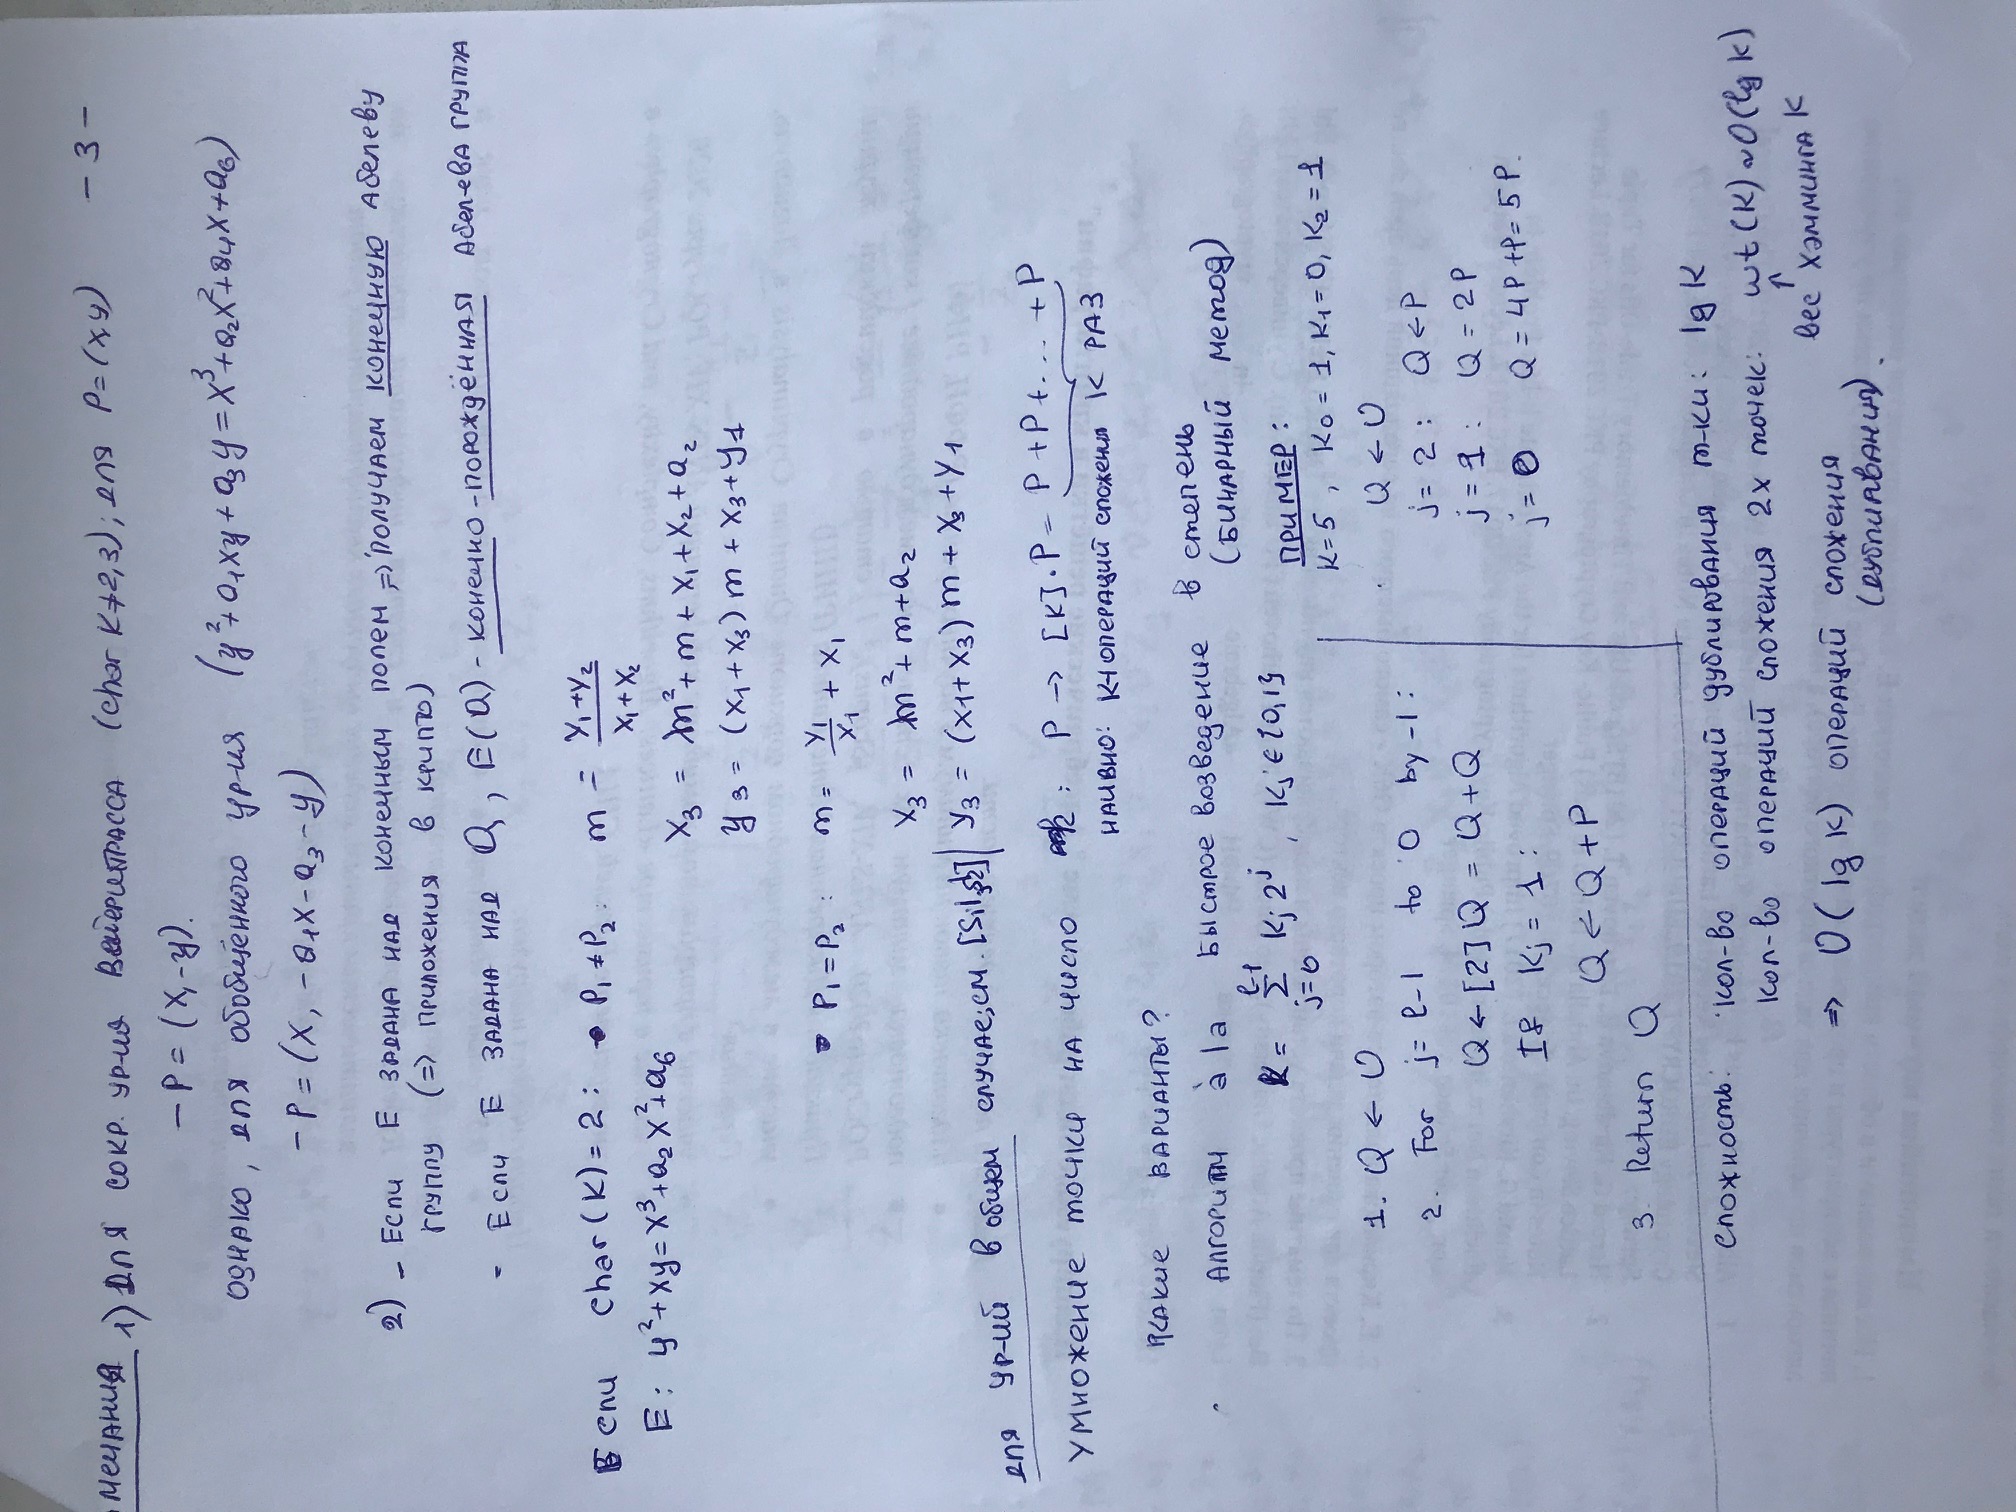 мечания 1) для сокр. ур-ия Вейерштрасса (char K≠2,3); для P=(x,y) – 3 –
–P = (x,–y).
однако, для обобщённого ур-ия (y²+a₁xy+a₃y=x³+a₂x²+a₄x+a₆)
–P = (x, –a₁x–a₃–y)
2) – Если E задана над конечным полем ⇒ получаем конечную абелеву
группу (⇒ приложения в крипто)
– Если E задана над Q, E(Q) – конечно-порождённая абел-ева группа
Если char(K)=2: • P₁≠P₂: m = (y₁+y₂)/(x₁+x₂)
E: y²+xy=x³+a₂x²+a₆
x₃ = m²+m+x₁+x₂+a₂
y₃ = (x₁+x₃)m+x₃+y₁
• P₁=P₂: m = y₁/x₁ + x₁
x₃ = m²+m+a₂
для ур-ий в общем случае, см. [Sil] y₃ = (x₁+x₃)m+x₃+y₁
Умножение точки на число: P → [K]·P = P+P+...+P
наивно: K-1 операций сложения K раз
Какие варианты?
Алгоритм à la быстрое возведение в степень
(бинарный метод)
k = Σ_{j=0}^{ℓ-1} kⱼ2ʲ, kⱼ∈{0,1}
1. Q ← O
2. For j=ℓ-1 to 0 by -1:
Q ← [2]Q = Q+Q
If kⱼ = 1:
Q ← Q+P
3. Return Q
ПРИМЕР:
K=5, K₀=1, K₁=0, K₂=1
Q ← O
j=2: Q ← P
j=1: Q = 2P
j=0 Q = 4P+P=5P.
сложность: кол-во операций дублирования т-ки: lg K
кол-во операций сложения 2х точек: wt(K) ~ O(lg K)
↑
вес Хэмминга K
⇒ O(lg K) операций сложения
(дублирования).